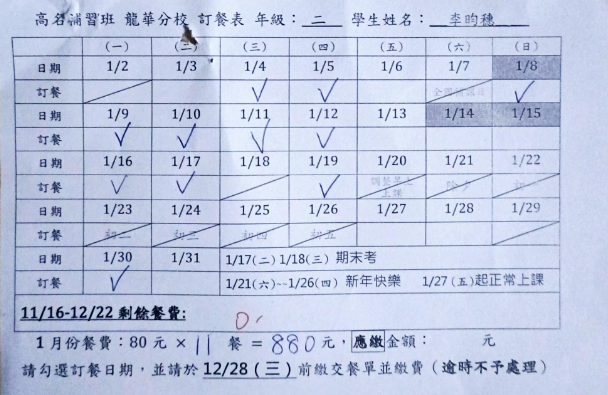 高名補習班 龍華分校 訂餐表 年級：二 學生姓名：李昀穗
(一) (二) (三) (四) (五) (六) (日)
日期 1/2 1/3 1/4 1/5 1/6 1/7 1/8
訂餐 ✓ ✓ ✓
日期 1/9 1/10 1/11 1/12 1/13 1/14 1/15
訂餐 ✓ ✓ ✓ ✓
日期 1/16 1/17 1/18 1/19 1/20 1/21 1/22
訂餐 ✓ ✓ ✓ 上課 除夕 初一
日期 1/23 1/24 1/25 1/26 1/27 1/28 1/29
訂餐 初二 初三 初四 初五
日期 1/30 1/31 1/17(二) 1/18(三) 期末考
訂餐 ✓ 1/21(六)~~1/26(四) 新年快樂 1/27 (五)起正常上課
11/16-12/22 剩餘餐費: 0.
1 月份餐費：80 元 × 11 餐 = 880 元，應繳金額： 元
請勾選訂餐日期，並請於 12/28 (三) 前繳交餐單並繳費 (逾時不予處理)